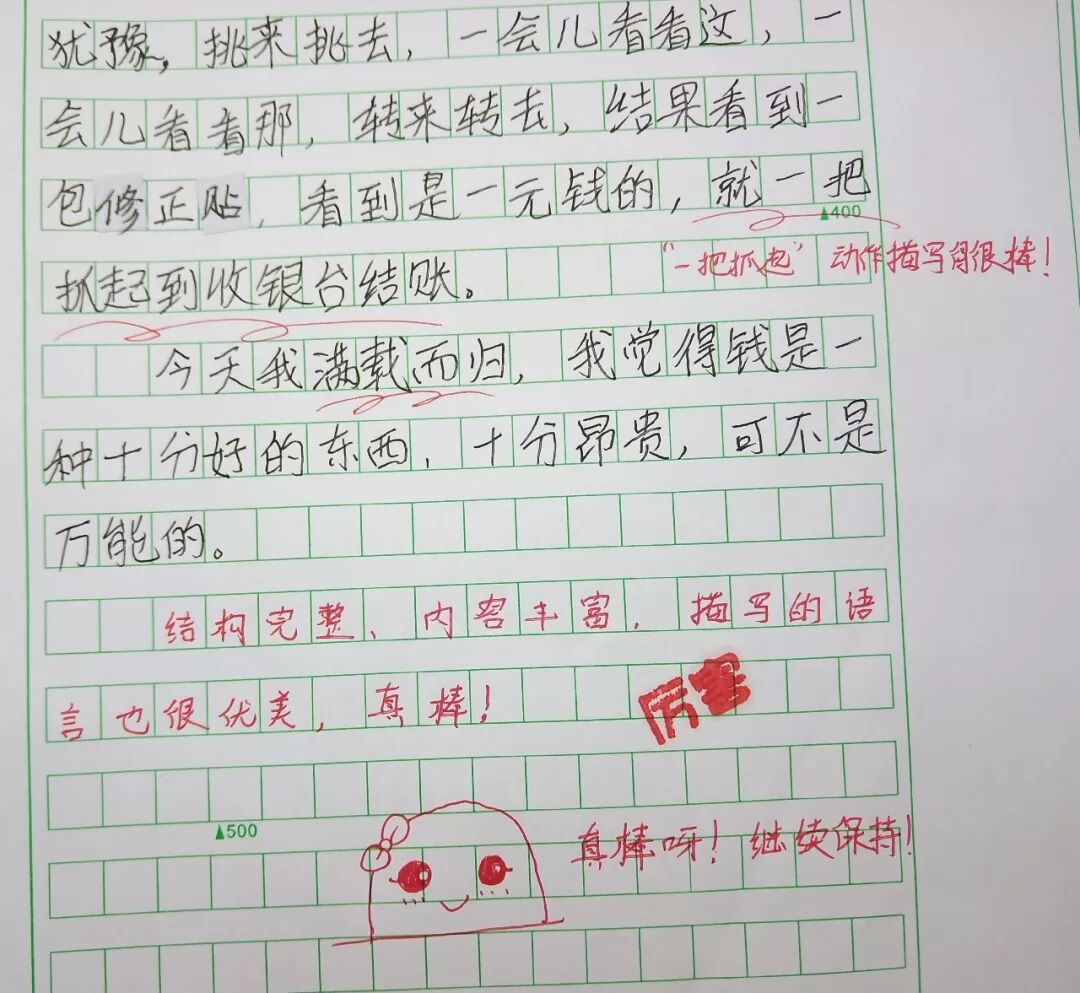 犹豫，挑来挑去，一会儿看看这，一
会儿看看那，转来转去，结果看到一
包修正贴，看到是一元钱的，就一把
▲400
抓起到收银台结账。
“一把抓起”动作描写得很棒！
今天我满载而归，我觉得钱是一
种十分好的东西，十分昂贵，可不是
万能的。
结构完整、内容丰富，描写的语
言也很优美，真棒！
厉害
▲500
真棒呀！继续保持！